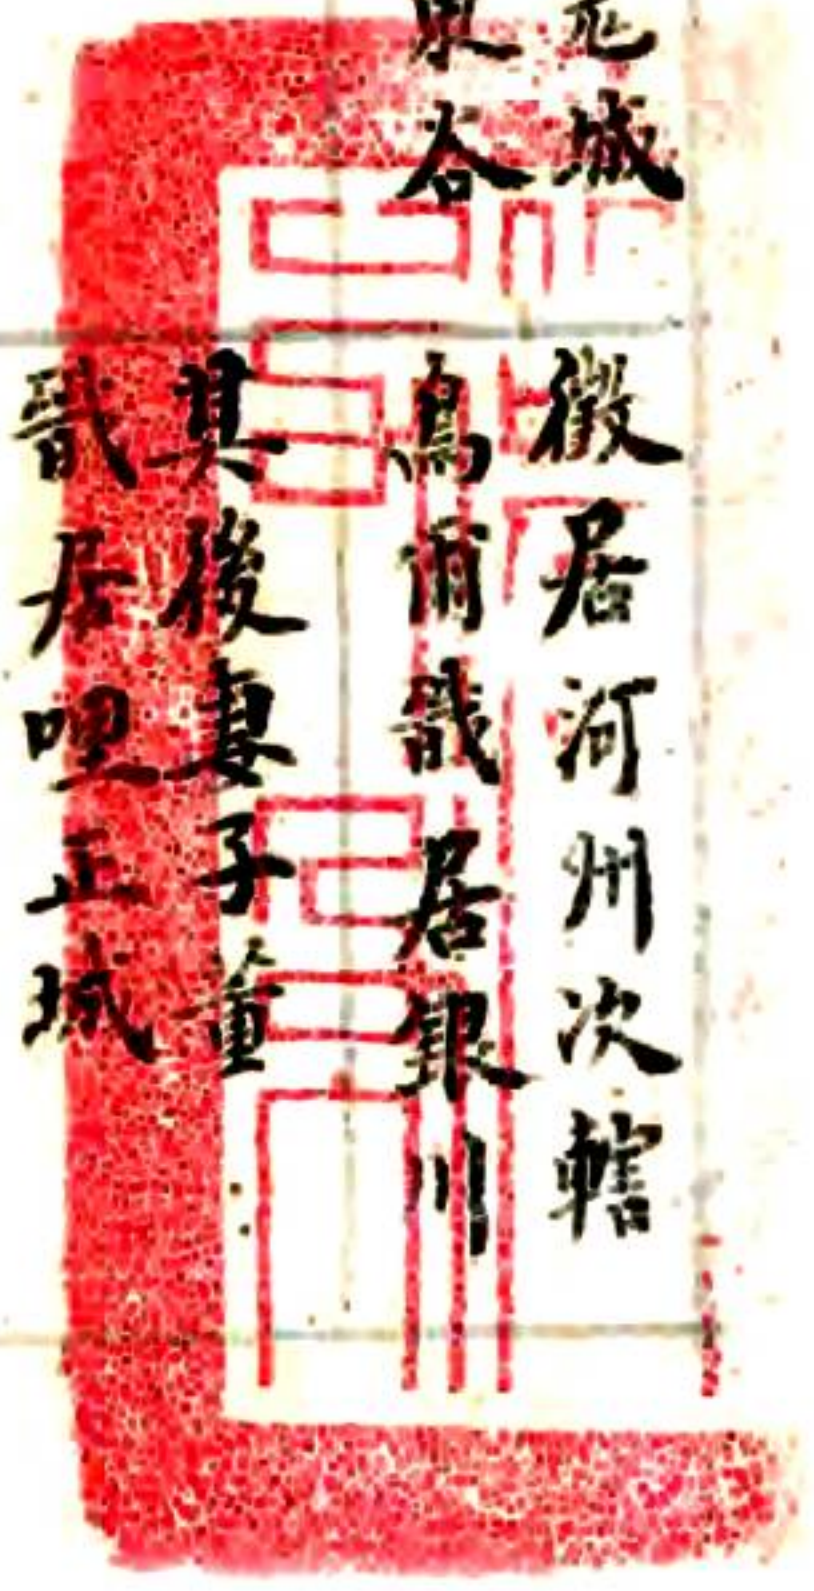 城
谷
徵居河州次轄
烏爾戩居銀川
其後妻子董
戩居哩正城